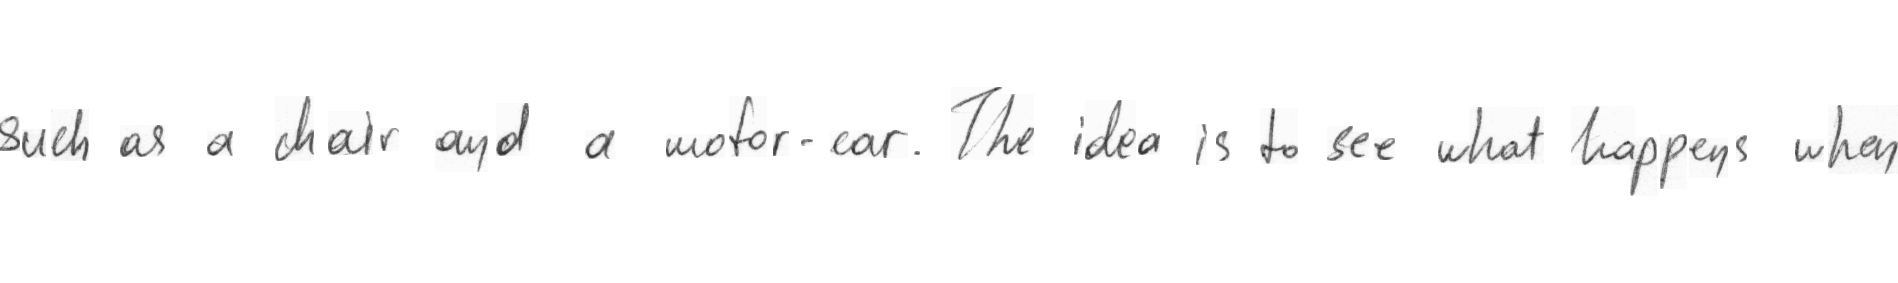 such as a chair and a motor-car. The idea is to see what happens when